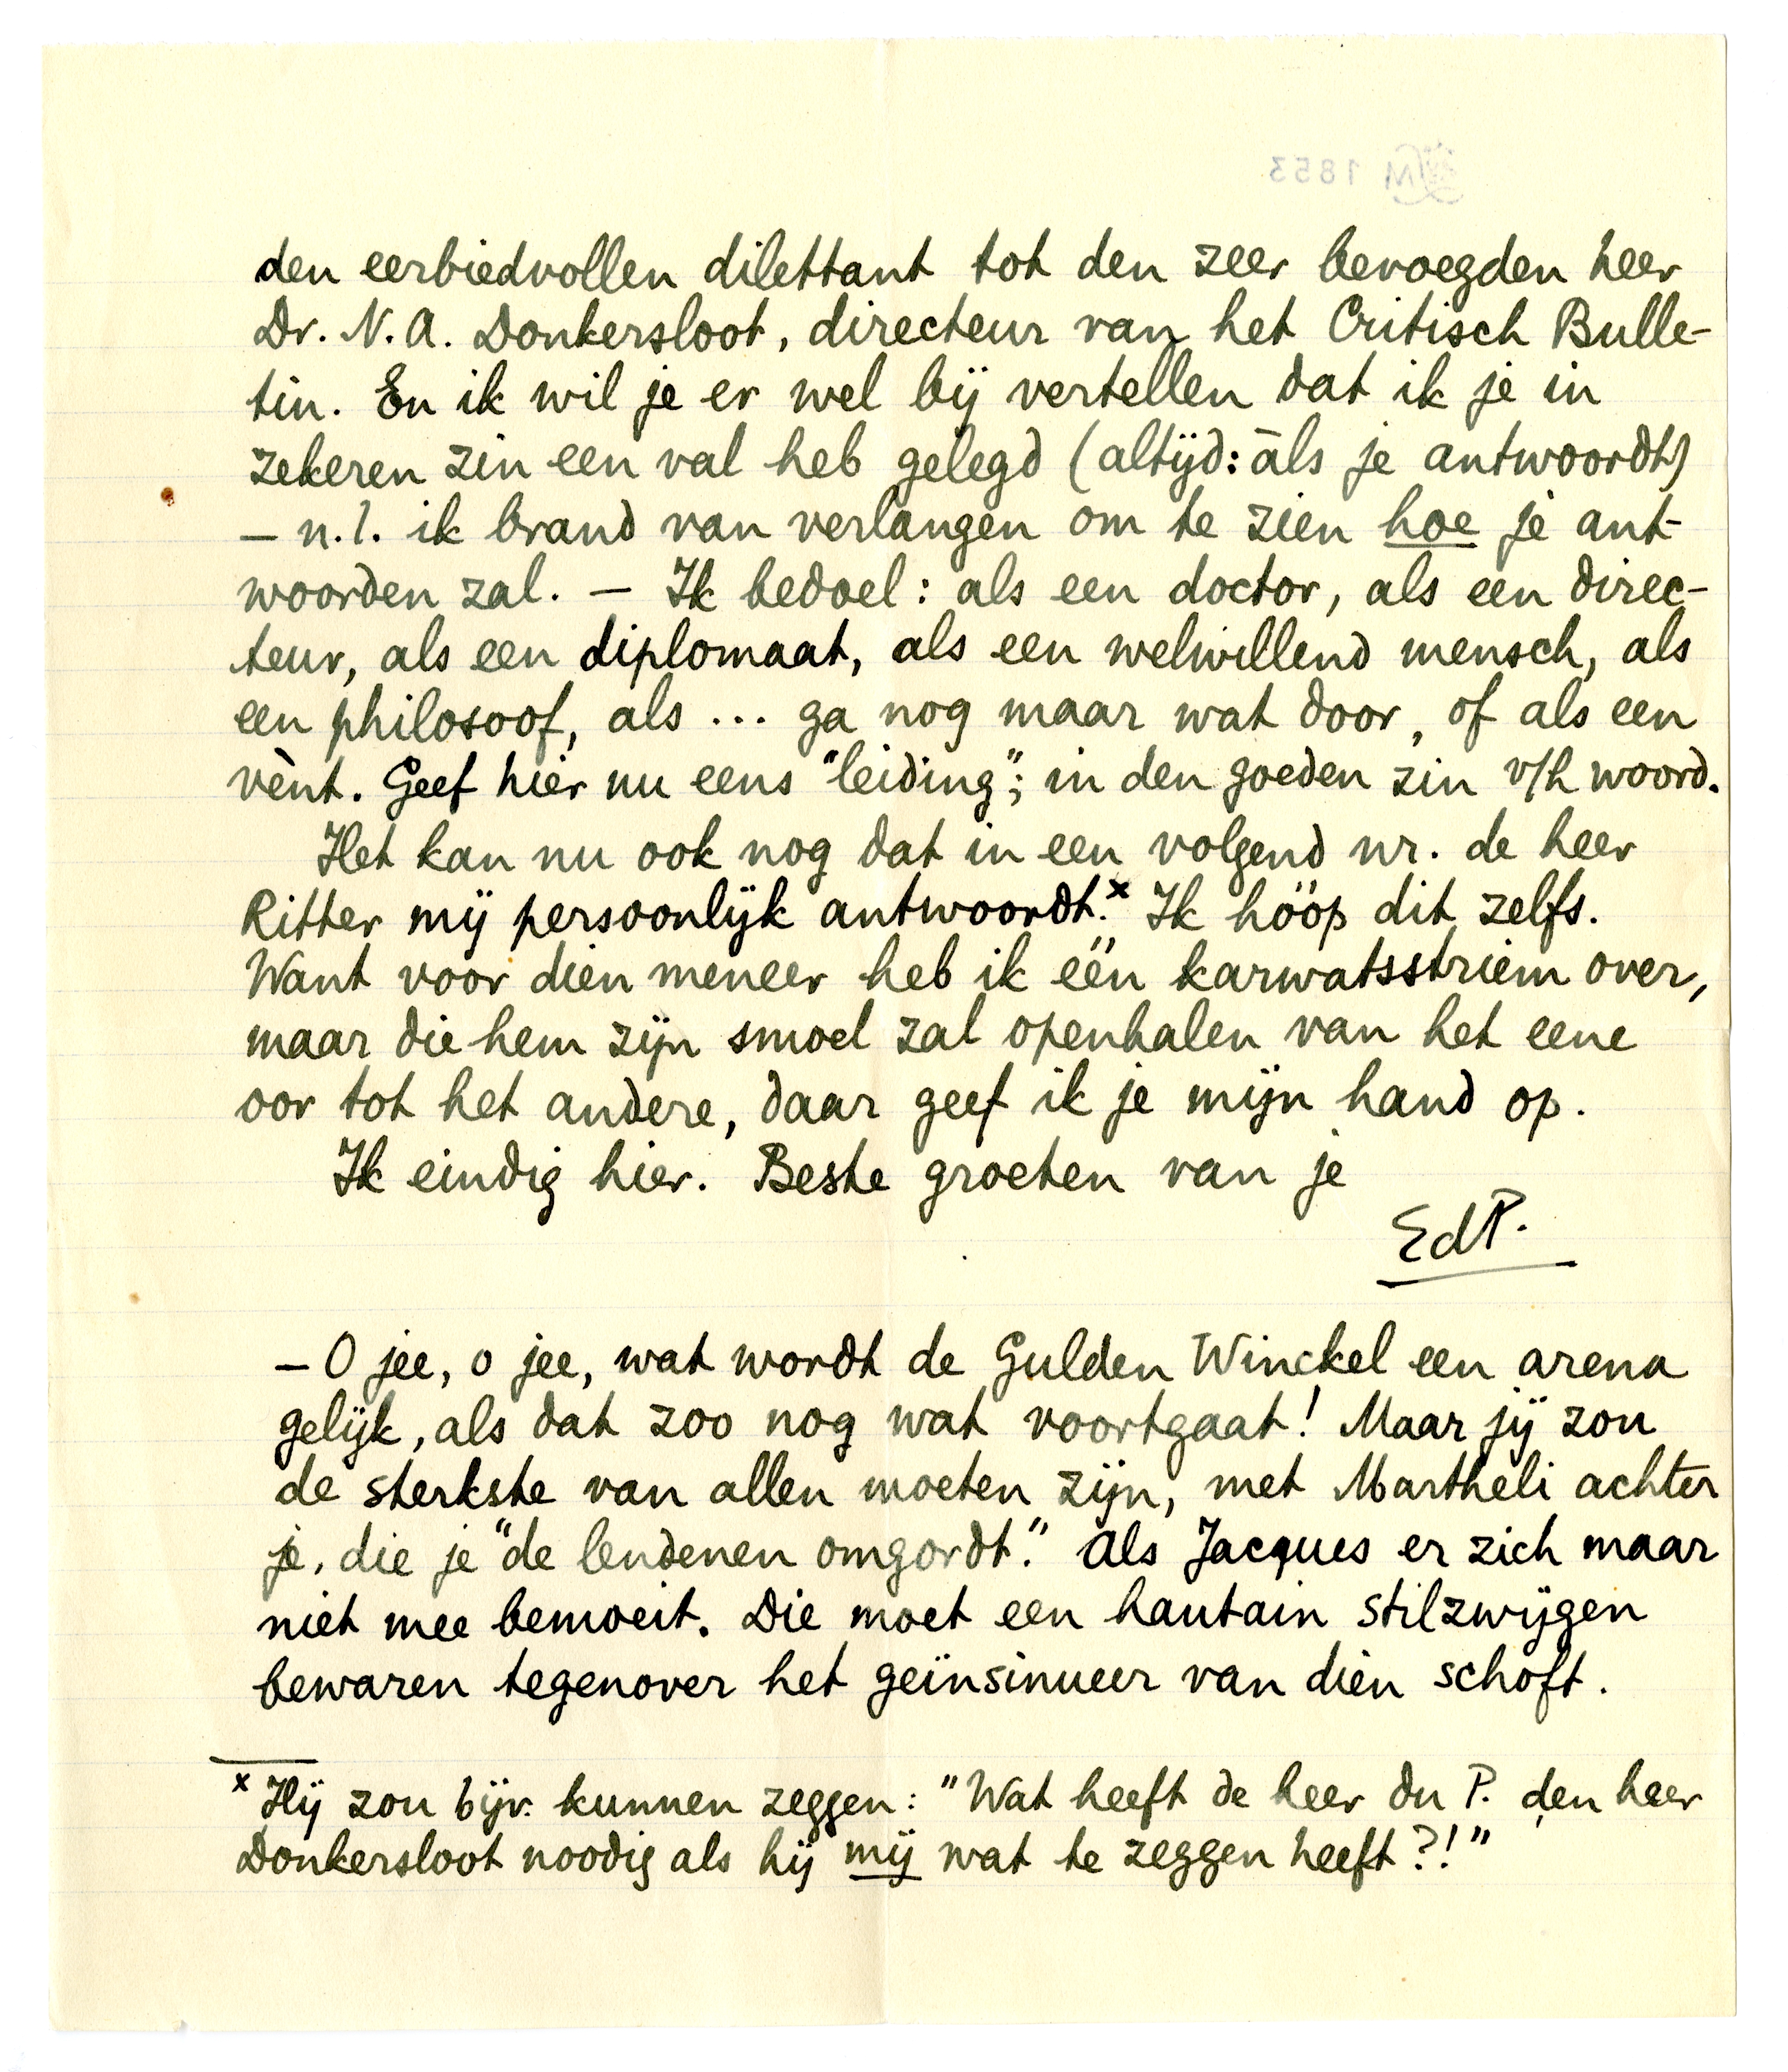 den eerbiedvollen dilettant tot den zeer bevoegden heer
Dr. N. A. Donkersloot, directeur van het Critisch Bulle-
tin. En ik wil je er wel bij vertellen dat ik je in
zekeren zin een val heb gelegd (altijd: āls je antwoordt)
— n.l. ik brand van verlangen om te zien hoe je ant-
woorden zal. — Ik bedoel: als een doctor, als een direc-
teur, als een diplomaat, als een welwillend mensch, als
een philosoof, als ... ga nog maar wat door, of als een
vènt. Geef hier nu eens "leiding"; in den goeden zin v/h woord.
Het kan nu ook nog dat in een volgend nr. de heer
Ritter mij persoonlijk antwoordt.ˣ Ik hóóp dit zelfs.
Want voor dien meneer heb ik één karwatsstriem over,
maar die hem zijn smoel zal openhalen van het eene
oor tot het andere, daar geef ik je mijn hand op.
Ik eindig hier. Beste groeten van je
EdP.
— O jee, o jee, wat wordt de Gulden Winckel een arena
gelijk, als dat zoo nog wat voortgaat! Maar jij zou
de sterkste van allen moeten zijn, met Martheli achter
je, die je "de lendenen omgordt." Als Jacques er zich maar
niet mee bemoeit. Die moet een hautain stilzwijgen
bewaren tegenover het geïnsinueer van dien schoft.
ˣ Hij zou bijv. kunnen zeggen: "Wat heeft de heer du P. den heer
Donkersloot noodig als hij mij wat te zeggen heeft?!"